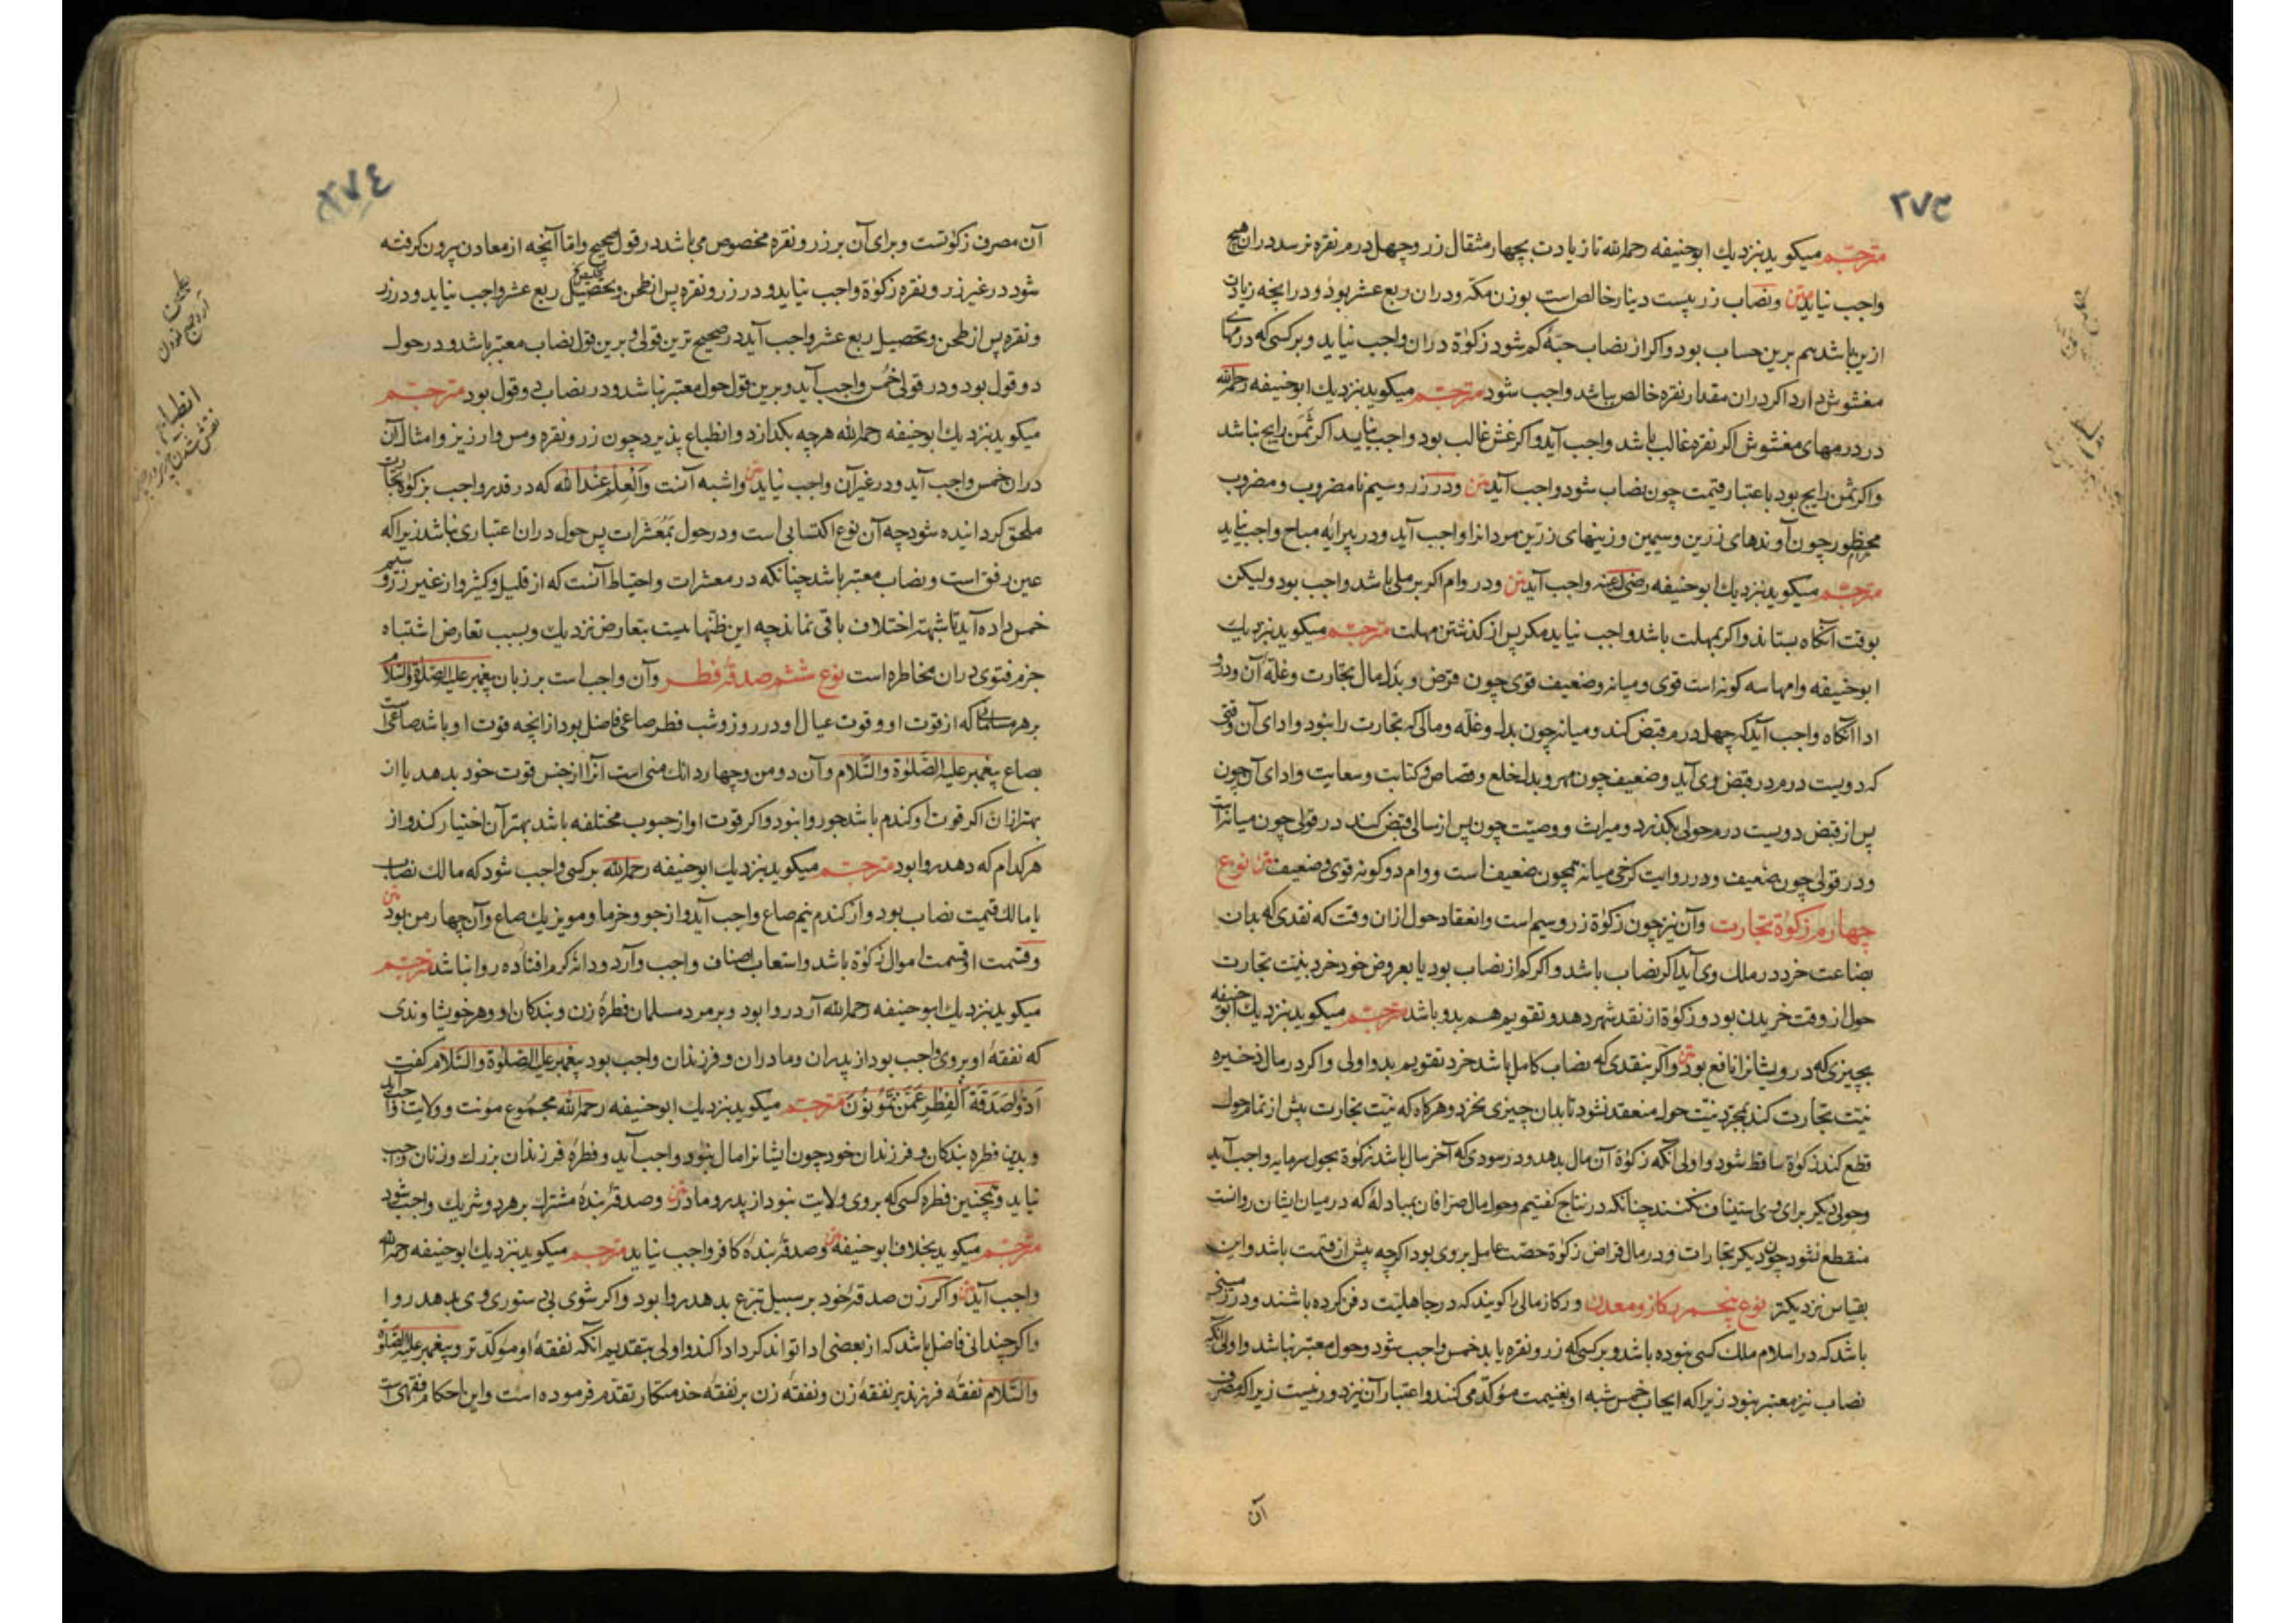 ۲۷۳
مترجم میکوید نزدیك ابوحنیفه رحمه الله تا زیادت بچهار مثقال زر و چهل درم نقره نرسد دران هیچ
واجب نیاید متن ونصاب زر بیست دینار خالص است بوزن مکه ودران ربع عشر بود و درانچه زیادت
ازین باشد هم برین حساب بود واکر از نصاب حبهٔ کم شود زکوة دران واجب نیاید وبر کسی که درمهای
مغشوش دارد اکر دران مقدار نقره خالص باشد واجب شود مترجم میکوید نزدیك ابوحنیفه رحمه الله
در درمهای مغشوش اکر نقره غالب باشد واجب آید واکر غش غالب بود واجب نیاید اکر ثمن رایج نباشد
واکر ثمن رایج بود باعتبار قیمت چون نصاب شود واجب آید متن ودر زر وسیم نامضروب و مضروب
محظور چون آوندهای زرین وسیمین وزینهای زرین مردانرا واجب آید ودر پیرایه مباح واجب نیاید
مترجم میکوید نزدیك ابوحنیفه رضی الله عنه واجب آید متن ودر وام اکر بر ملی باشد واجب بود ولیکن
بوقت آنکاه بستاند واکر بمهلت باشد واجب نیاید مکر پس از کذشتن مهلت مترجم میکوید نزدیك
ابوحنیفه وامها سه کونه است قوی و میانه وضعیف قوی چون قرض و بدل مال تجارت وغلهٔ آن ودرو
ادا آنکاه واجب آید که چهل درم قبض کند و میانه چون بدل وغله ومالی که تجارت را نبود وادای آن وقتی
که دویست درم در قبض وی آید وضعیف چون مهر وبدل خلع وقصاص وکتابت وسعایت وادای آن چون
پس از قبض دویست درم حولی بکذرد و میراث ووصیت چون پس از سالی قبض کند در قولی چون میانه است
ودر قولی چون ضعیف ودر روایت کرخی میانه همچون ضعیف است ووام دو کونه قوی وضعیف متن نوع
چهارم زکوة تجارت وآن نیز چون زکوة زر وسیم است وانعقاد حول ازان وقت که نقدی که بدان
بضاعت خرد در ملك وی آید اکر نصاب باشد واکر کم از نصاب بود یا بعروض خود خرد بنیت تجارت
حول از وقت خریدن بود وزکوة از نقد شهر دهد و تقویم هم بدو باشد مترجم میکوید نزدیك ابوحنیفه
بچیزی که درویشانرا نافع بود متن واکر بنقدی که نصاب کامل باشد خرد تقویم بدو اولی واکر در مال ذخیره
نیت تجارت کند بمجرد نیت حول منعقد نشود تا بدان چیزی نخرد وهرکاه که نیت تجارت پیش از تمام حول
قطع کند زکوة ساقط شود واولی آنکه زکوة آن مال بدهد ودر سودی که آخر سال باشد زکوة بحول سرمایه واجب آید
وحولی دیکر برای وی استیناف نکنند چنانکه در نتاج کفتیم وحول مال صرافان بمبادلهٔ که در میان ایشان روانست
منقطع نشود چون دیکر تجارات ودر مال قراض زکوة حصت عامل بر وی بود اکرچه پیش از قسمت باشد واین
بقیاس نزدیکتر نوع پنجم رکاز ومعدن ورکاز مالی را کویند که در جاهلیت دفن کرده باشند ودر زمینی
باشد که در اسلام ملك کسی نبوده باشد وبر کسی که زر ونقره یابد خمس واجب شود وحول معتبر نباشد واولی آنکه
نصاب نیز معتبر نبود زیرا که ایجاب خمس شبه او بغنیمت مؤکد می کند واعتبار آن نیز دور نیست زیرا که مصرف
آن
۲۷۴
آن مصرف زکوتست وبرای آن بر زر ونقره مخصوص می باشد در قول صحیح واما آنچه از معادن بیرون کرفته
شود در غیر زر ونقره زکوة واجب نیاید ودر زر ونقره پس از طحن وتحصیل ربع عشر واجب نیاید ودر زر
ونقره پس از طحن وتحصیل ربع عشر واجب آید در صحیح ترین قولی وبرین قول نصاب معتبر باشد ودر حول
دو قول بود ودر قولی خمس واجب آید وبرین قول حول معتبر نباشد ودر نصاب دو قول بود مترجم
میکوید نزدیك ابوحنیفه رحمه الله هرچه بکدازد وانطباع پذیرد چون زر ونقره ومس وارزیز وامثال آن
دران خمس واجب آید ودر غیر آن واجب نیاید متن واشبه آنست والعلم عند الله که در قدر واجب بزکوة تجارت
ملحق کردانیده شود چه آن نوع اکتسابی است ودر حول بمعشرات پس حول دران اعتباری نباشد زیرا که
عین رفق است ونصاب معتبر باشد چنانکه در معشرات واحتیاط آنست که از قلیل وکثیر واز غیر زر وسیم
خمس داده آید تا شبهت اختلاف باقی نماند چه این ظنها است بتعارض نزدیك وبسبب تعارض اشتباه
جزم فتوی دران مخاطره است نوع ششم صدقهٔ فطر وآن واجب است بر زبان پیغمبر علیه الصلوة والسلام
بر هر مسلمانی که از قوت او وقوت عیال او در روز وشب فطر صاعی فاضل بود ازانچه قوت او باشد صاعی است
بصاع پیغمبر علیه الصلوة والسلام وآن دو من وچهار دانك منی است آنرا از جنس قوت خود بدهد یا از
بهتر ازان اکر قوت او کندم باشد جو روا نبود واکر قوت او از حبوب مختلفه باشد بهتر آن اختیار کند واز
هر کدام که دهد روا بود مترجم میکوید نزدیك ابوحنیفه رحمه الله بر کسی واجب شود که مالك نصاب
یا مالك قیمت نصاب بود واز کندم نیم صاع واجب آید واز جو وخرما ومویز یك صاع وآن چهار من بود متن
وقسمت او قسمت اموال زکوة باشد واستیعاب اصناف واجب وآرد ودانهٔ کرم افتاده روا نباشد مترجم
میکوید نزدیك ابوحنیفه رحمه الله آرد روا بود وبر مرد مسلمان فطرهٔ زن وبندکان او وهر خویشاوندی
که نفقهٔ او بر وی واجب بود از پدران ومادران وفرزندان واجب بود پیغمبر علیه الصلوة والسلام کفت
ادوا صدقة الفطر عمن تمونون مترجم میکوید نزدیك ابوحنیفه رحمه الله مجموع مونت وولایت واجب آید
وبدین فطره بندکان وفرزندان خود چون ایشانرا مال نبود واجب آید وفطرهٔ فرزندان بزرك وزنان واجب
نیاید وهمچنین فطره کسی که بروی ولایت نبود از پدر ومادر متن وصدقهٔ بندهٔ مشترك بر هر دو شریك واجب شود
مترجم میکوید بخلاف ابوحنیفه متن وصدقهٔ بندهٔ کافر واجب نیاید مترجم میکوید نزدیك ابوحنیفه رحمه الله
واجب آید متن واکر زن صدقهٔ خود بر سبیل تبرع بدهد روا بود واکر شوی بی دستوری وی بدهد روا
واکر چندانی فاضل باشد که از بعضی ادا تواند کرد ادا کند واولی بتقدیم آنکه نفقهٔ او مؤکدتر وپیغمبر علیه الصلوة
والسلام نفقهٔ فرزند بر نفقهٔ زن ونفقهٔ زن بر نفقهٔ خدمتکار تقدم فرموده است واین احکام فقهی است